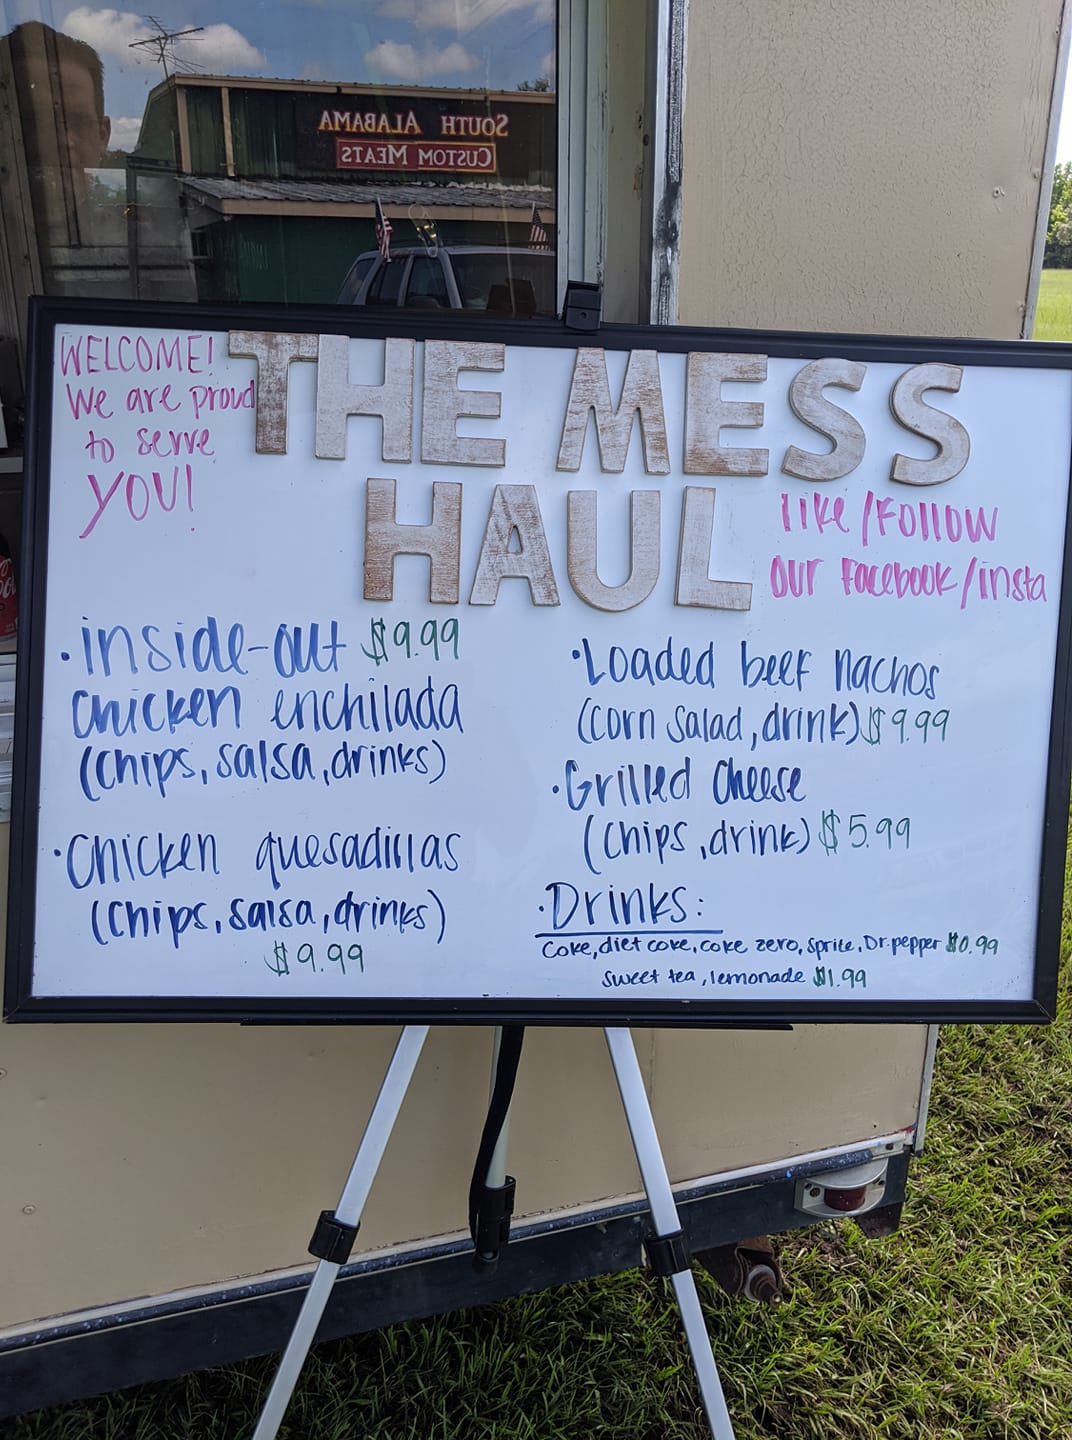 SOUTH ALABAMA
CUSTOM MEATS
WELCOME!
We are proud
to serve
YOU!
THE MESS
HAUL
like/Follow
our Facebook/insta
• inside-out $9.99
chicken enchilada
(chips, salsa, drinks)
• Chicken quesadillas
(chips, salsa, drinks)
$9.99
• Loaded beef nachos
(corn salad, drink) $9.99
• Grilled cheese
(chips, drink) $5.99
• Drinks:
Coke, diet coke, coke zero, sprite, Dr. pepper $0.99
sweet tea, lemonade $1.99